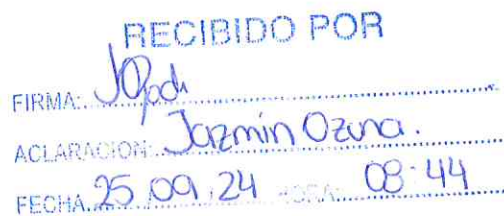 RECIBIDO POR
FIRMA:
ACLARACION: Jazmín Ozuna.
FECHA 25 09 24 HORA: 08:44